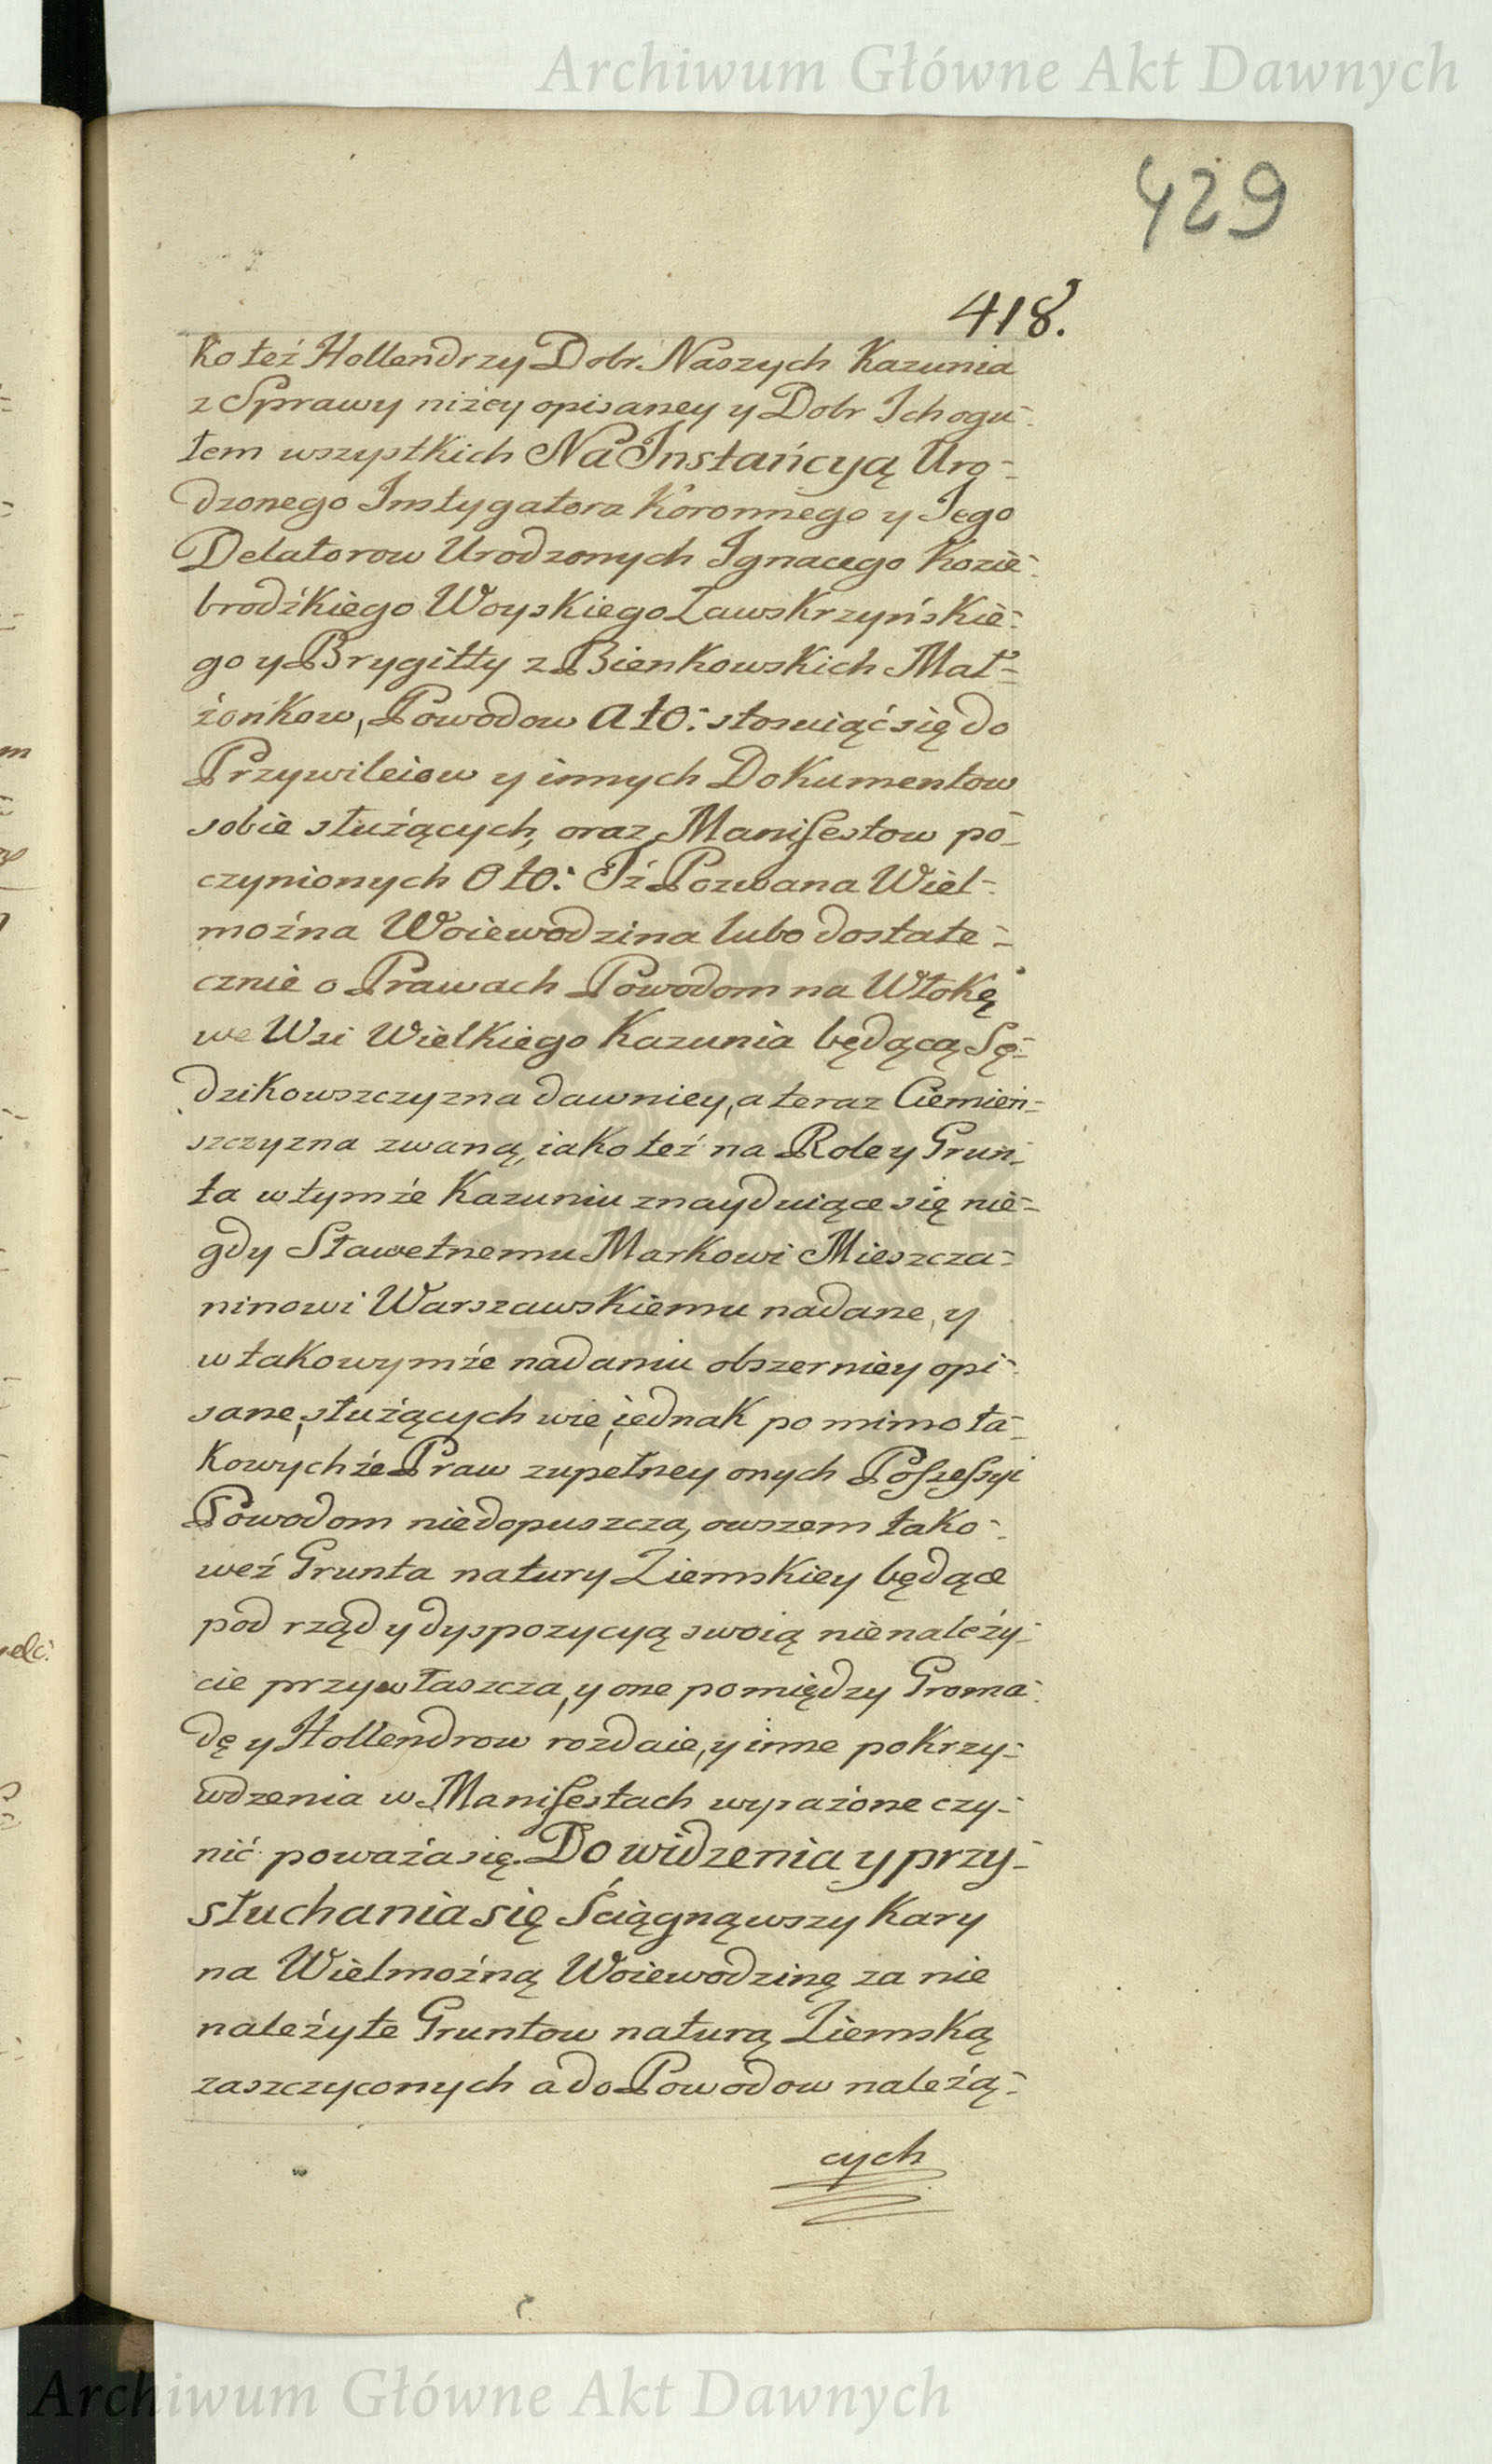 Archiwum Główne Akt Dawnych
429
418.
ko też Hollendrzy Dobr Naszych Kazunia
z Sprawy niżey opisaney y Dobr Ich ogu-
łem wszystkich Na Instańcyą Uro-
dzonego Instygatora Koronnego y Jego
Delatorow Urodzonych Ignacego Kozie-
brodźkiego Woyskiego Zawskrzyńskie-
go y Brygitty z Bienkowskich Mał-
żonkow, Powodow A to: stosuiąć się do
Przywileiow y innych Dokumentow
sobie służących, oraz Manifestow po-
czynionych O to: Iż Pozwana Wiel-
można Woiewodzina lubo dostate-
cznie o Prawach Powodom na Włokę
we Wsi Wielkiego Kazunia będącą Sę-
dzikowszczyzna dawniey, a teraz Ciemień-
szczyzna zwaną, iako też na Role y Grun-
ta w tymże Kazuniu znayduiące się nie-
gdy Sławetnemu Markowi Mieszcza-
ninowi Warszawskiemu nadane, y
w takowymże nadaniu obszerniey opi-
sane, służących wie, iednak pomimo ta-
kowychże Praw zupełney onych Possessyi
Powodom niedopuszcza, owszem tako-
weż Grunta natury Ziemskiey będące
pod rząd y dyspozycyą swoią nienależy-
cie przywłaszcza, y one pomiędzy Groma-
dę y Hollendrow rozdaie, y inne pokrzy-
wdzenia w Manifestach wyrażone czy-
nić poważa się. Do widzenia y przy-
słuchania się Ściągnąwszy Kary
na Wielmożną Woiewodzinę za nie
należyte Gruntow naturą Ziemską
zaszczyconych a do Powodow należą-
cych
Archiwum Główne Akt Dawnych